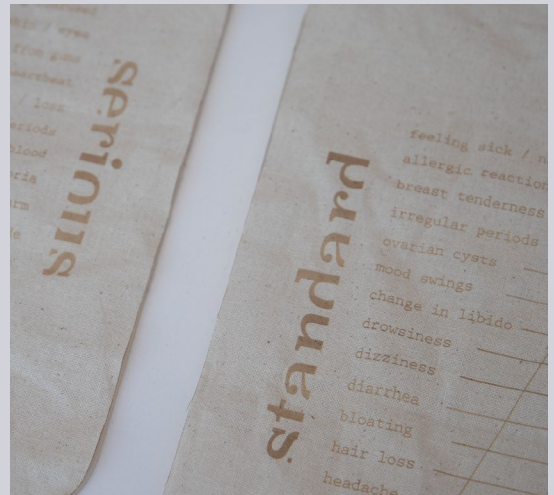 serious
/ eyes
from gums
heartbeat
/ loss
periods
blood
standard
feeling sick /
allergic reaction
breast tenderness
irregular periods
ovarian cysts
mood swings
change in libido
drowsiness
dizziness
diarrhea
bloating
hair loss
headache